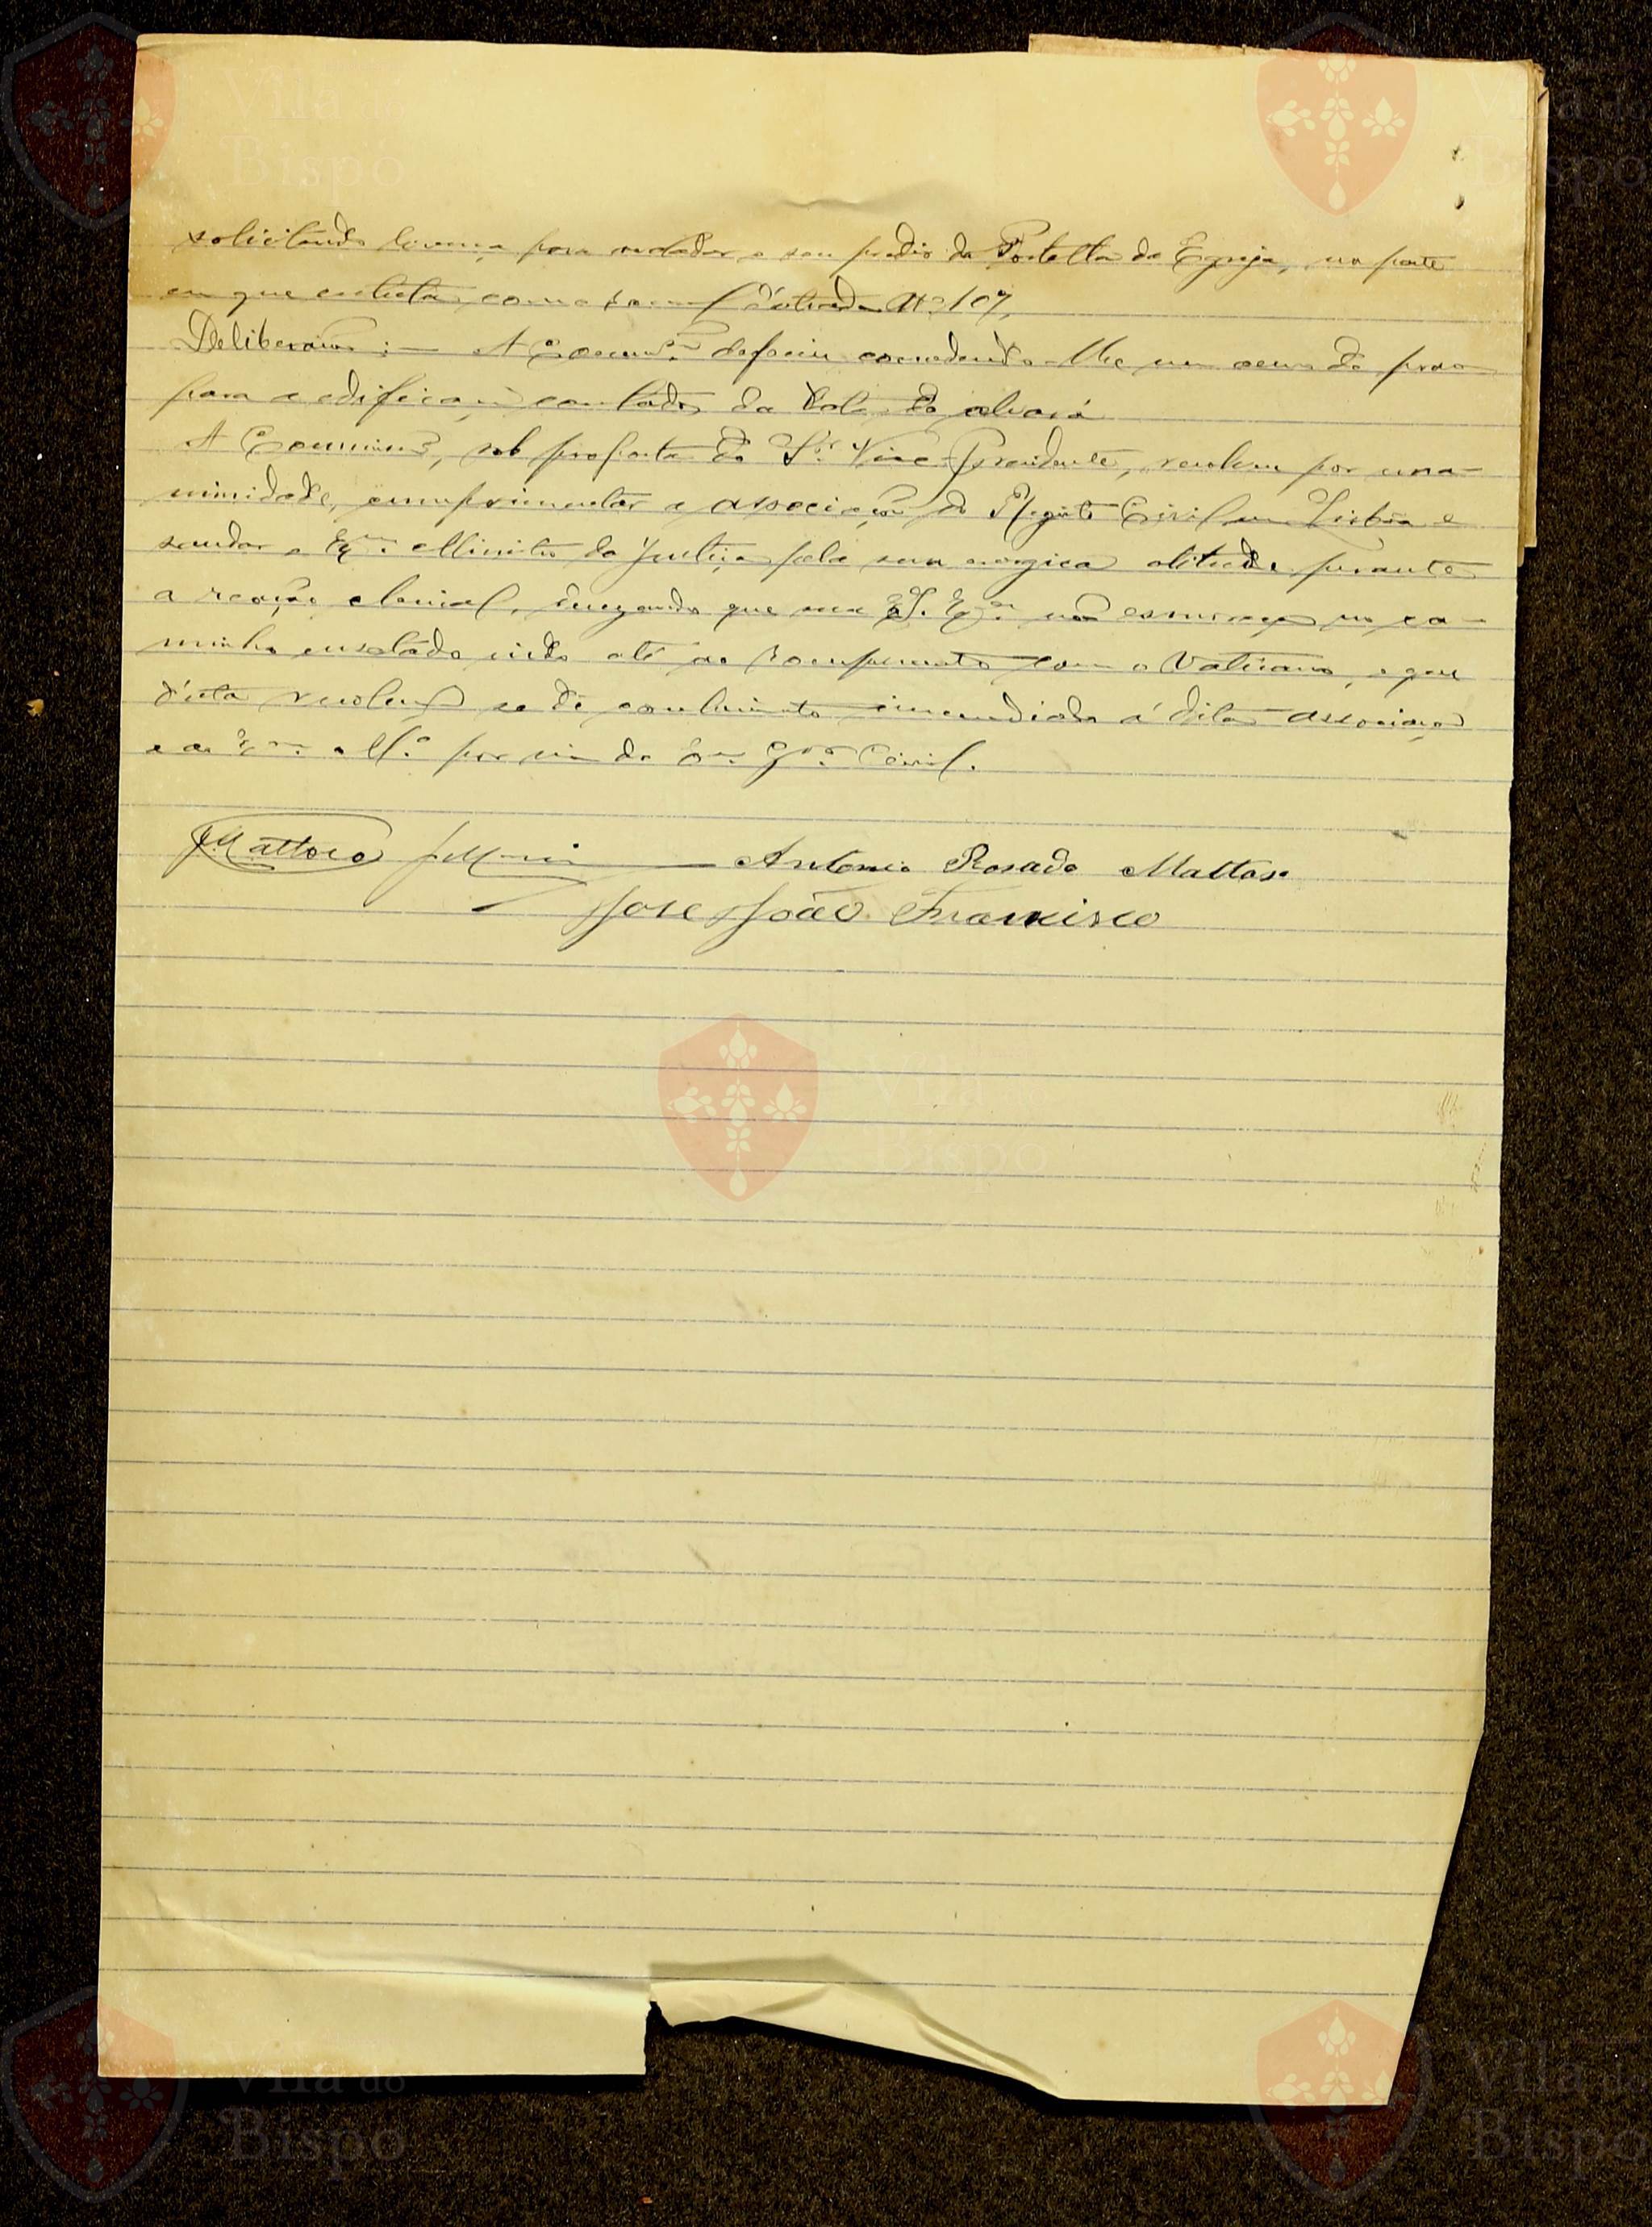 solicitando licença para vedar o seu predio da Portella da Egreja, na parte
em que entesta com o ramal d'estrada Nº 107.
Deliberaçaõ: — A Commᵃᵒ deferiu concedendo-lhe um anno de praso
para a edificaçaõ contados da data do alvará
A Commissaõ, sob proposta do Sr. Vice-Presidente, resolveu por una-
nimidade, cumprimentar a associaçaõ do Registo Civil em Lisboa e
saudar o Exᵐᵒ. Ministro da Justiça pela sua energica atitude perante
a reação clerical, desejando que sua Exª. naõ esmoreça no ca-
minho encetado indo até ao rompimento com o Vaticano, e que
d'esta resoluçaõ se dê conhecimento immediato á dita associaçaõ
e ao Exᵐᵒ. Mº. por via do Exᵐᵒ Gᵒʳ Civil.
Mattoso Antonio Rosado Mattos
José João Francisco
Vila do
Bispo